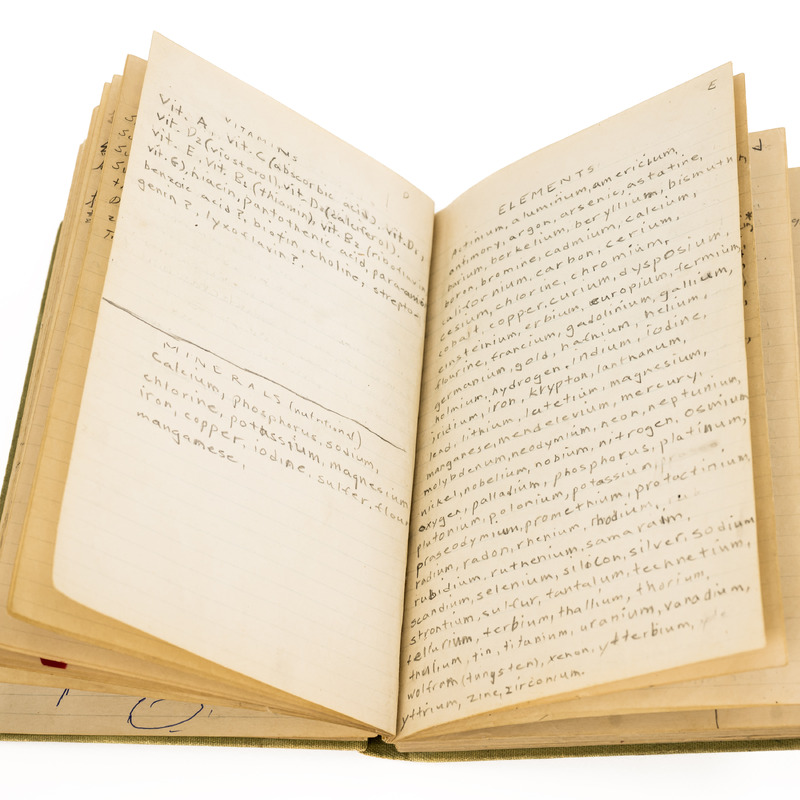 VITAMINS
Vit. A, Vit. C (abscorbic acid). Vit. D1,
vit. D2 (viosterol), vit. D3 (calciferol).
vit. E, Vit. B1 (thiomin), vit. B2 (riboflavin
vit. G), niacin, pantothenic acid, para-amino
benzoic acid?, biotin, choline, strepto-
genin?, lyxoflavin?.
MINERALS (nutritional)
Calcium, phosphorus, sodium,
chlorine, potassium, magnesium
iron, copper, iodine, sulfer, flou
mangamese,
E
ELEMENTS
Actinium, aluminium, americium,
antimony, argon, arsenic, astatine,
barium, berkelium, beryllium, bismuth
boron, bromine, cadmium, calcium,
californium, carbon, cerium,
cesium, chlorine, chromium,
cobalt, copper, curium, dysposium,
einsteinium, erbium, europium, fermium,
flourine, francium, gadolinium, gallium,
germanium, gold, hafnium, helium,
holmium, hydrogen, indium, iodine,
iridium, iron, krypton, lanthanum,
lead, lithium, lutetium, magnesium,
manganese, mendelevium, mercury,
molybdenum, neodymium, neon, neptunium,
nickel, nobelium, nobium, nitrogen, osmium
oxygen, palladium, phosphorus, platinum,
plutonium, polonium, potassium,
praseodymium, promethium, protactinium,
radium, radon, rhenium, rhodium,
rubidium, ruthenium, samaraum,
scandium, selenium, silicon, silver, sodium
strontium, sulfur, tantalum, technetium,
tellurium, terbium, thallium, thorium,
thullium, tin, titanium, uranium, vanadium,
wolfram (tungsten), xenon, ytterbium,
yttrium, zinc, zirconium.